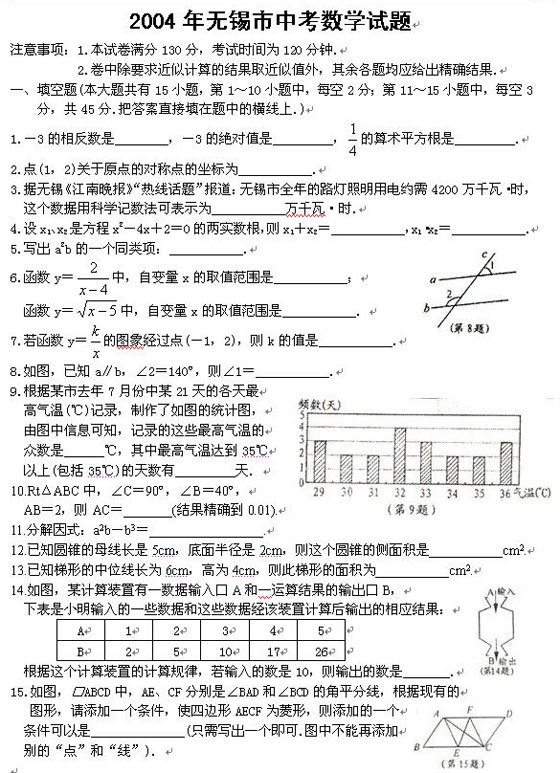 2004 年无锡市中考数学试题
注意事项：1.本试卷满分 130 分，考试时间为 120 分钟.
2.卷中除要求近似计算的结果取近似值外，其余各题均应给出精确结果.
一、填空题(本大题共有 15 小题，第 1～10 小题中，每空 2 分；第 11～15 小题中，每空 3
分，共 45 分.把答案直接填在题中的横线上.)
1.－3 的相反数是________，－3 的绝对值是________，1/4 的算术平方根是________.
2.点(1，2)关于原点的对称点的坐标为__________.
3.据无锡《江南晚报》“热线话题”报道：无锡市全年的路灯照明用电约需 4200 万千瓦·时，
这个数据用科学记数法可表示为__________万千瓦·时.
4.设 x₁、x₂ 是方程 x²－4x＋2＝0 的两实数根，则 x₁＋x₂＝__________，x₁·x₂＝__________.
5.写出 a²b 的一个同类项：__________.
6.函数 y＝2/(x－4) 中，自变量 x 的取值范围是__________；
函数 y＝√(x－5) 中，自变量 x 的取值范围是__________.
c
a
1
2
b
(第 8 题)
7.若函数 y＝k/x 的图象经过点(－1，2)，则 k 的值是__________.
8.如图，已知 a∥b，∠2＝140°，则∠1＝__________.
9.根据某市去年 7 月份中某 21 天的各天最
高气温(℃)记录，制作了如图的统计图，
由图中信息可知，记录的这些最高气温的
众数是______℃，其中最高气温达到 35℃
以上(包括 35℃)的天数有________天.
频数(天)
5
4
3
2
1
0
29 30 31 32 33 34 35 36 气温(℃)
(第 9 题)
10.Rt△ABC 中，∠C＝90°，∠B＝40°，
AB＝2，则 AC＝______(结果精确到 0.01).
11.分解因式：a²b－b³＝______________.
12.已知圆锥的母线长是 5cm，底面半径是 2cm，则这个圆锥的侧面积是__________cm².
13.已知梯形的中位线长为 6cm，高为 4cm，则此梯形的面积为__________cm².
14.如图，某计算装置有一数据输入口 A 和一运算结果的输出口 B，
下表是小明输入的一些数据和这些数据经该装置计算后输出的相应结果：
A 1 2 3 4 5
B 2 5 10 17 26
根据这个计算装置的计算规律，若输入的数是 10，则输出的数是________.
A 输入
B 输出
(第14题)
15.如图，▱ABCD 中，AE、CF 分别是∠BAD 和∠BCD 的角平分线，根据现有的
图形，请添加一个条件，使四边形 AECF 为菱形，则添加的一个
条件可以是______________(只需写出一个即可.图中不能再添加
别的“点”和“线”).
A F D
B E C
(第 15 题)